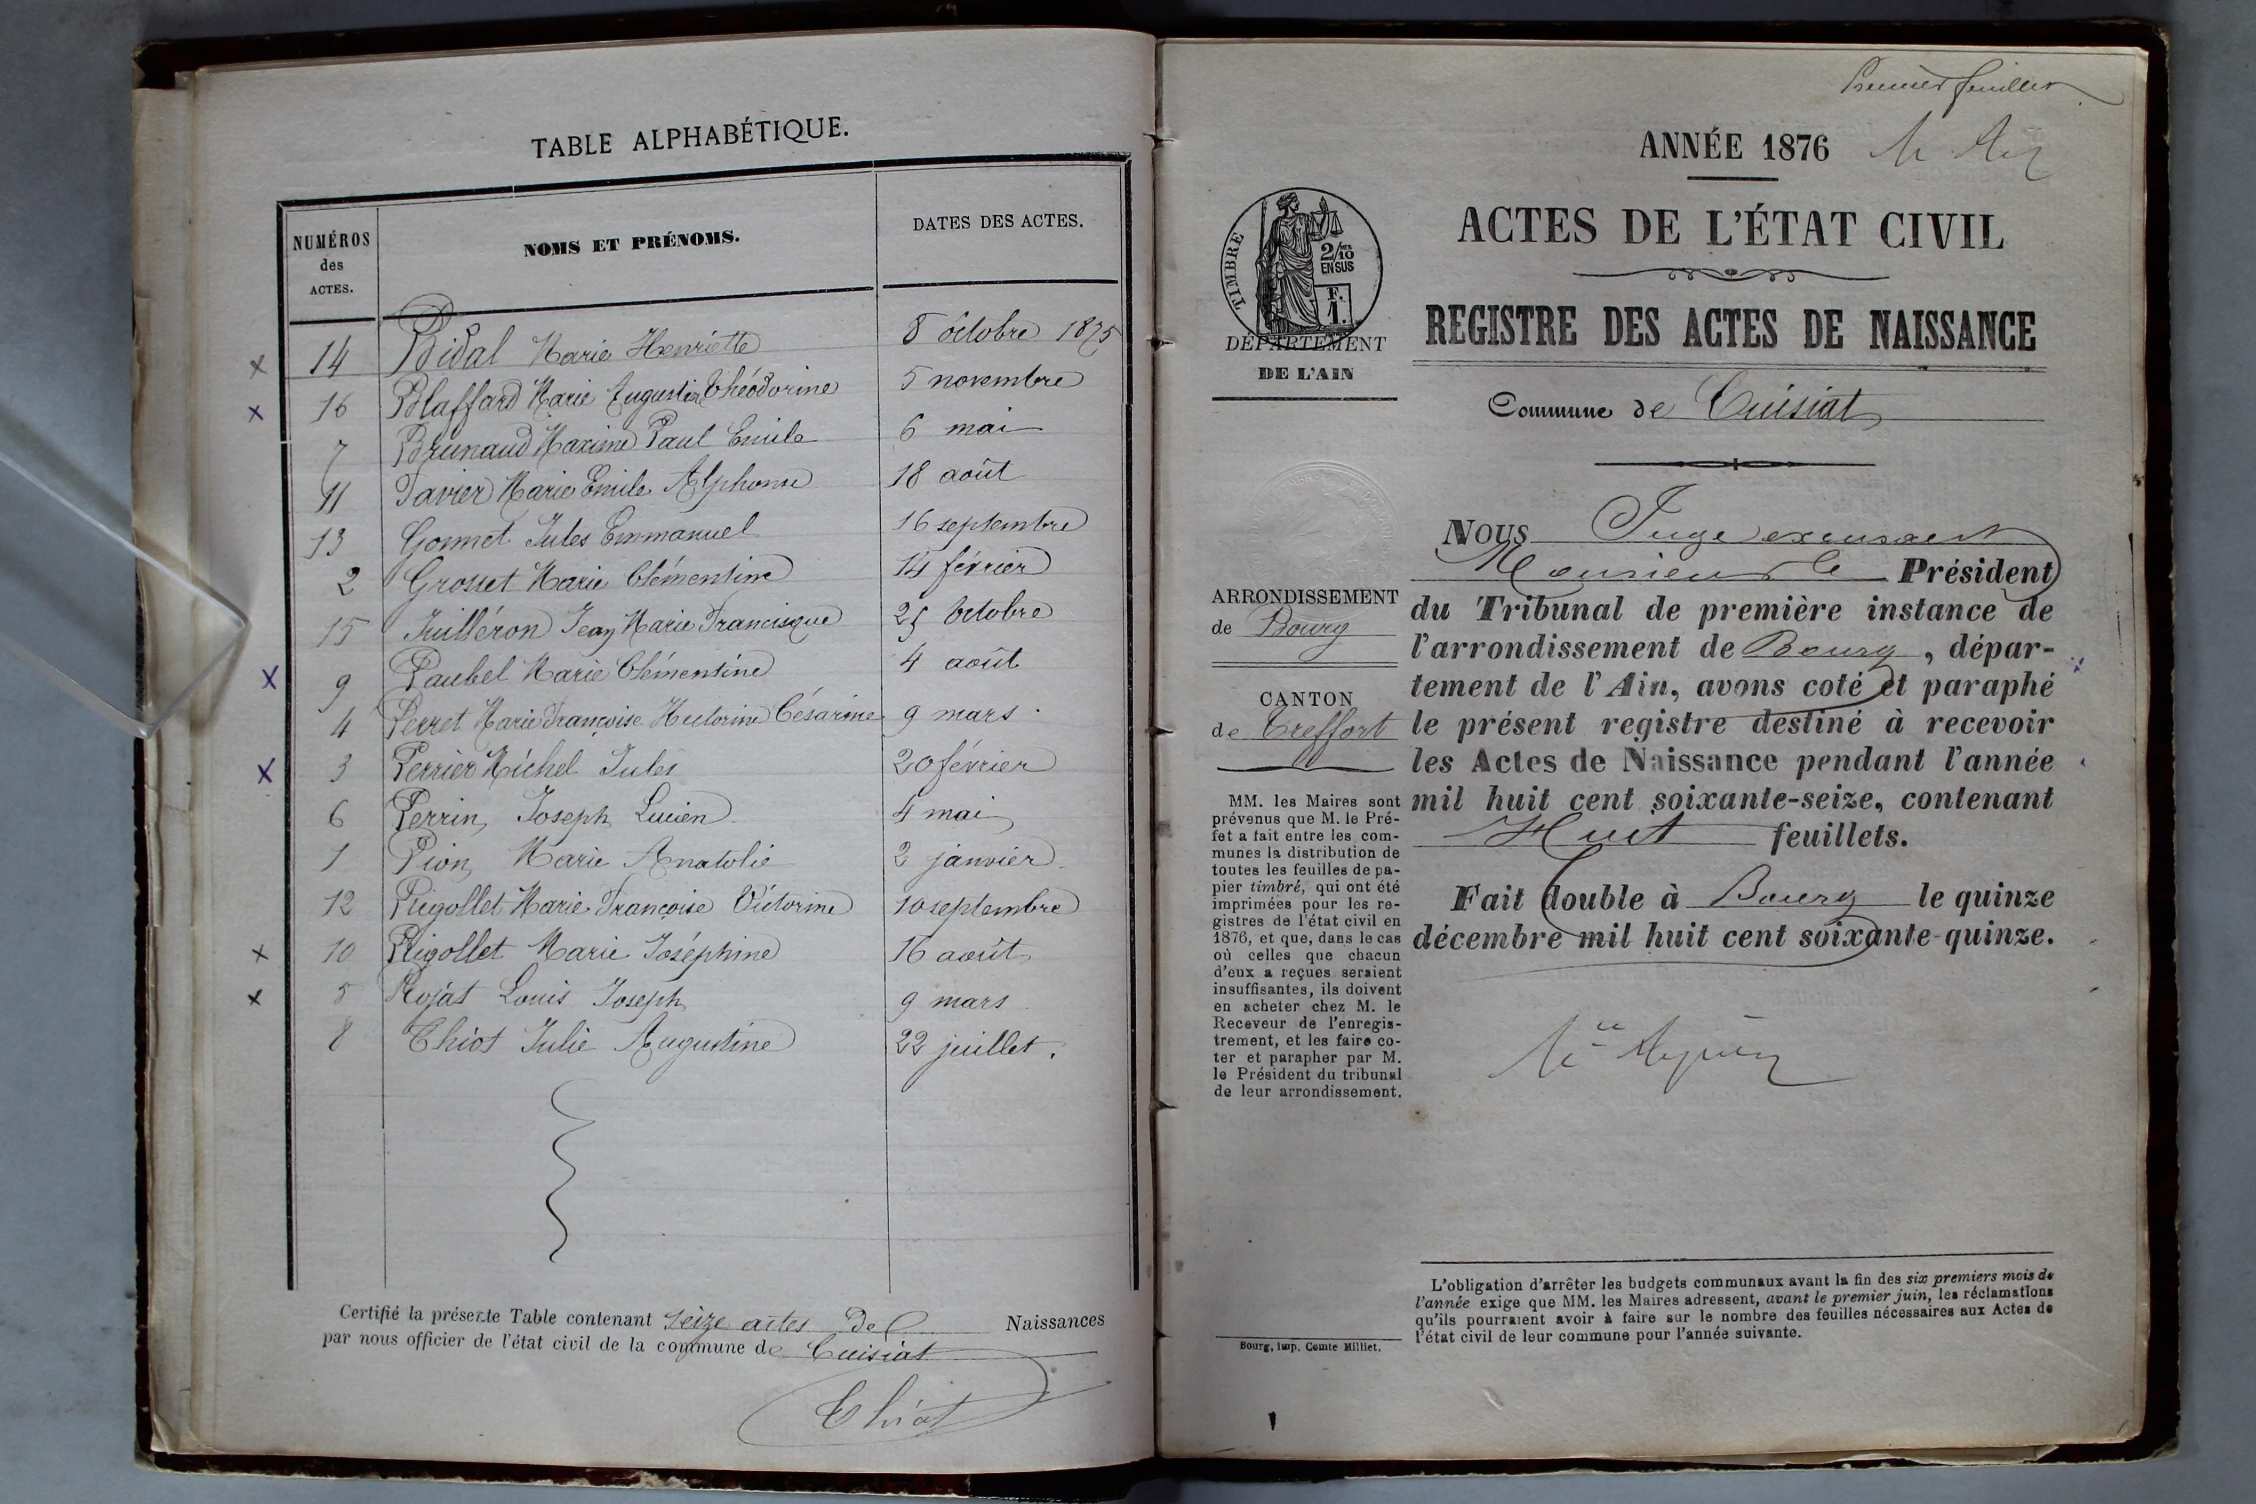 TABLE ALPHABÉTIQUE.
NUMÉROS
des
ACTES.
NOMS ET PRÉNOMS.
DATES DES ACTES.
x 14 Bidal Marie Henriette 8 octobre 1875
x 16 Blaffard Marie Augustin Théodorine 5 novembre
7 Brunaud Maxime Paul Emile 6 mai
11 Favier Marie Emile Alphonse 18 août
13 Gonnet Jules Emmanuel 16 septembre
2 Grosset Marie Clémentine 14 février
15 Juilléron Jean Marie Francisque 25 octobre
x 9 Paubel Marie Clémentine 4 août
4 Perret Marie Françoise Victorine Césarine 9 mars
x 3 Perrier Michel Jules 20 février
6 Perrin Joseph Lucien 4 mai
1 Pion Marie Anatolie 2 janvier
12 Rigollet Marie Françoise Victorine 10 septembre
x 10 Rigollet Marie Joséphine 16 août
x 5 Rojat Louis Joseph 9 mars
8 Thiot Julie Augustine 22 juillet.
Certifié la présente Table contenant seize actes de Naissances
par nous officier de l'état civil de la commune de Cuisiat
Thiot
Premier feuillet
ANNÉE 1876
ACTES DE L'ÉTAT CIVIL
REGISTRE DES ACTES DE NAISSANCE
Commune de Cuisiat
TIMBRE
2/10
EN SUS
F.
1.
DÉPARTEMENT
DE L'AIN
ARRONDISSEMENT
de Bourg
CANTON
de Treffort
MM. les Maires sont
prévenus que M. le Pré-
fet a fait entre les com-
munes la distribution de
toutes les feuilles de pa-
pier timbré, qui ont été
imprimées pour les re-
gistres de l'état civil en
1876, et que, dans le cas
où celles que chacun
d'eux a reçues seraient
insuffisantes, ils doivent
en acheter chez M. le
Receveur de l'enregis-
trement, et les faire co-
ter et parapher par M.
le Président du tribunal
de leur arrondissement.
Bourg, imp. Comte Milliet.
NOUS Juge excusant
Monsieur le Président
du Tribunal de première instance de
l'arrondissement de Bourg, dépar-
tement de l'Ain, avons coté et paraphé
le présent registre destiné à recevoir
les Actes de Naissance pendant l'année
mil huit cent soixante-seize, contenant
Huit feuillets.
Fait double à Bourg le quinze
décembre mil huit cent soixante-quinze.
L'obligation d'arrêter les budgets communaux avant la fin des six premiers mois de
l'année exige que MM. les Maires adressent, avant le premier juin, les réclamations
qu'ils pourraient avoir à faire sur le nombre des feuilles nécessaires aux Actes de
l'état civil de leur commune pour l'année suivante.